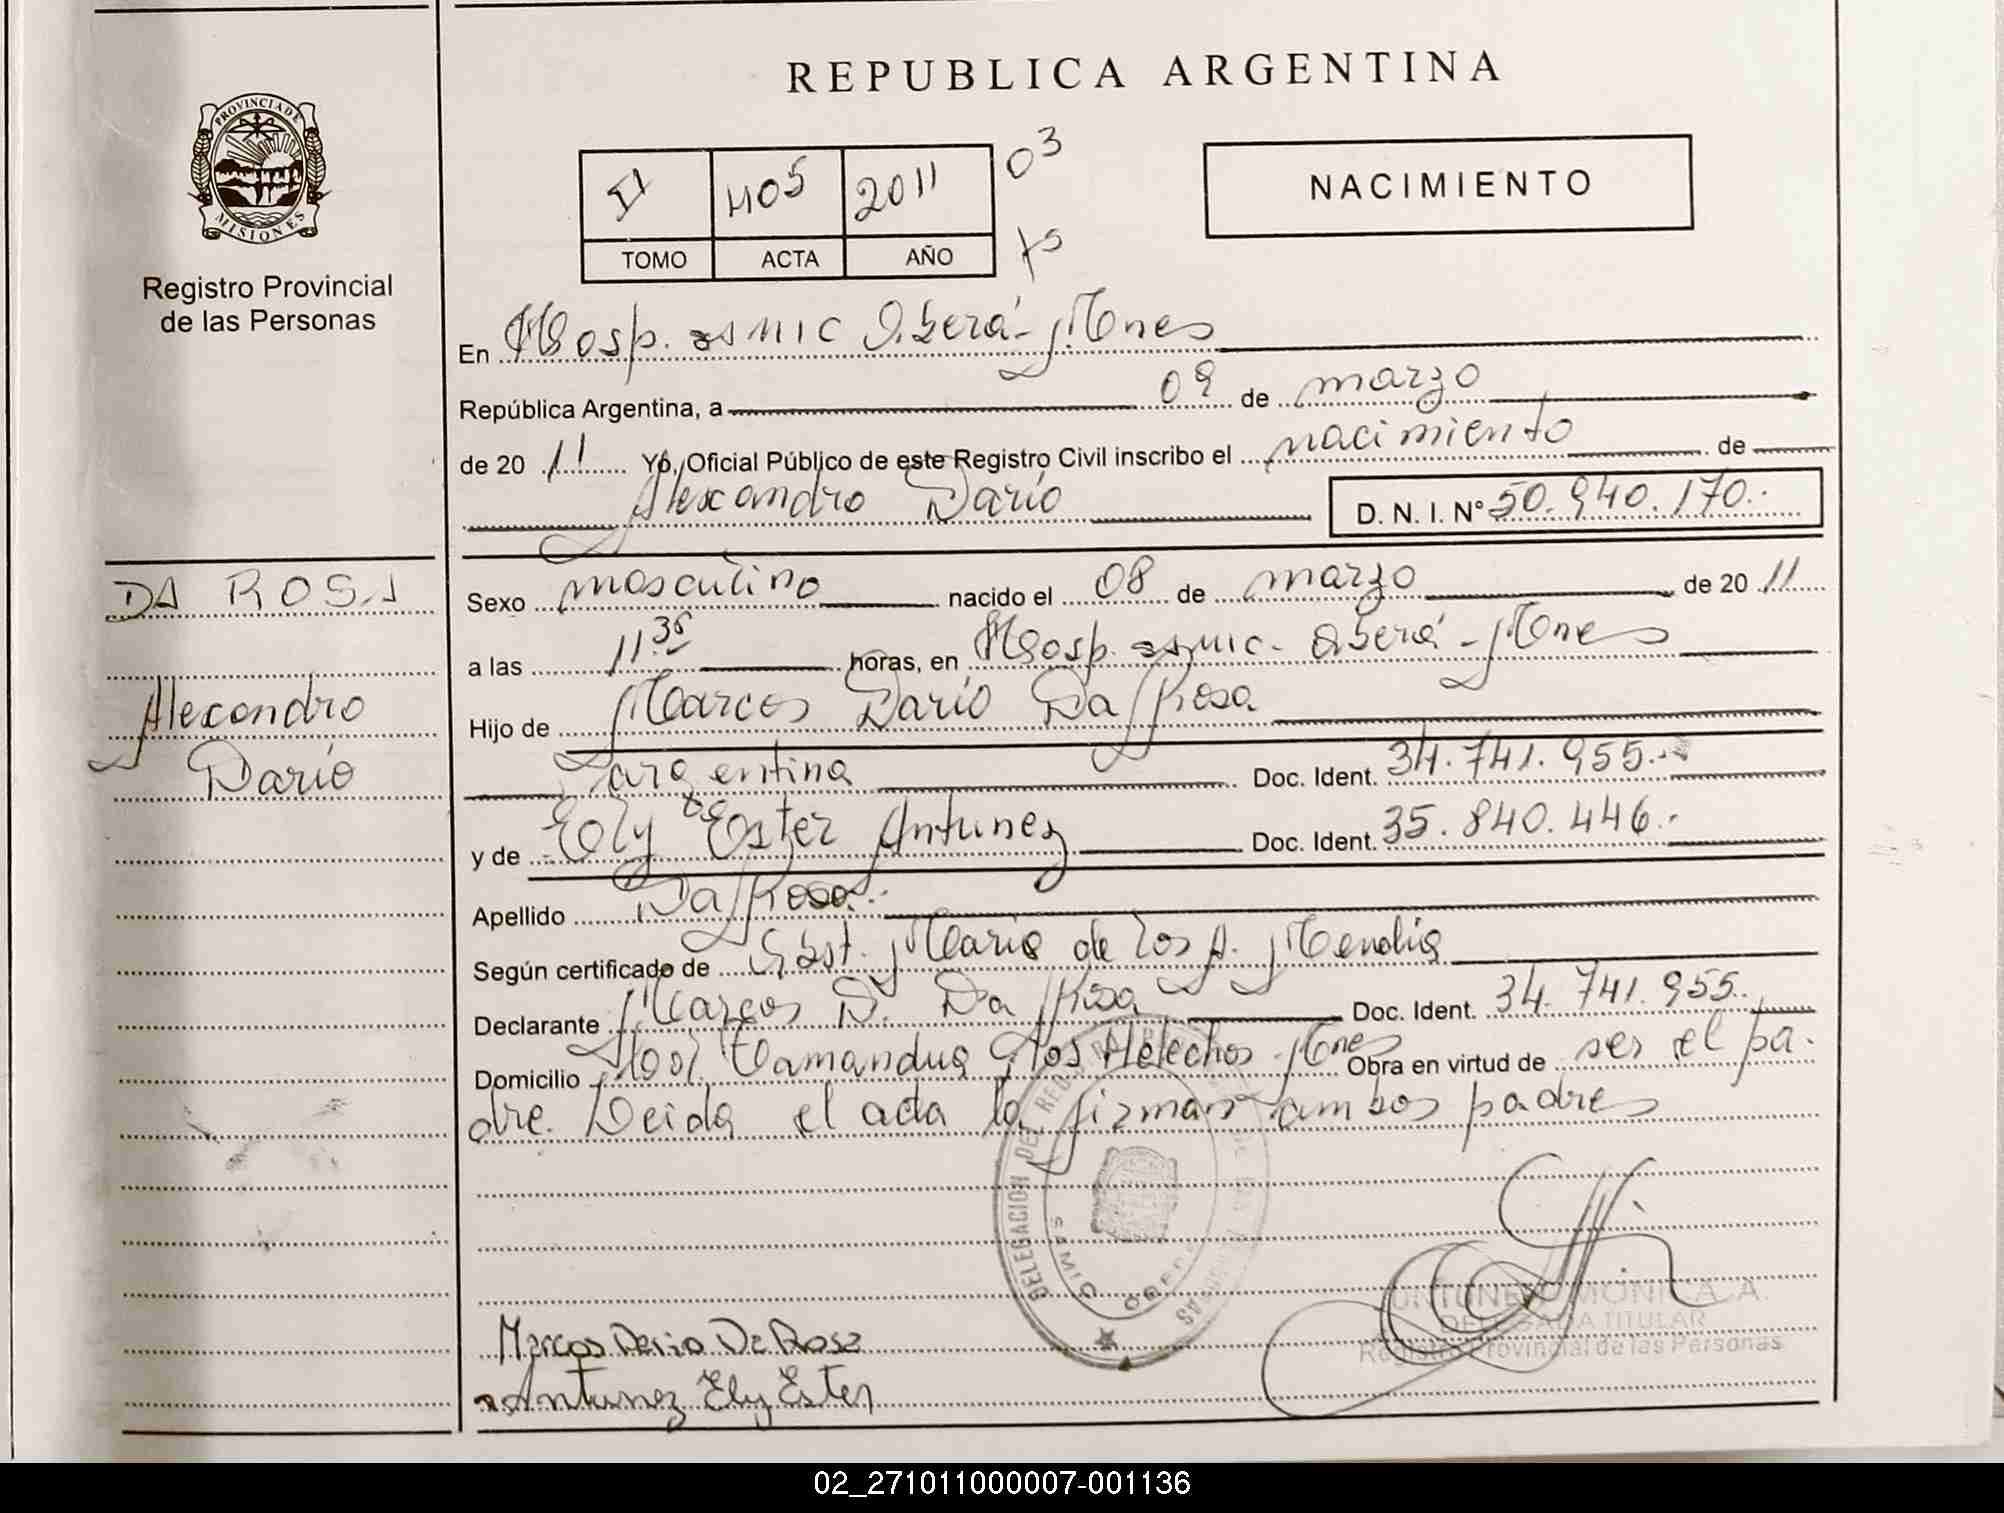 REPUBLICA ARGENTINA
PROVINCIA DE
MISIONES
Registro Provincial
de las Personas
II 405 2011 03
TOMO ACTA AÑO
NACIMIENTO
En Hosp. Oberá - Mnes
República Argentina, a 09 de marzo
de 20 11 Yo, Oficial Público de este Registro Civil inscribo el nacimiento de
Alexandro Darío D. N. I. Nº 50.940.170.-
DA ROSA
Alexandro
Darío
Sexo masculino nacido el 08 de marzo de 20 11
a las 11 horas, en Hosp. Oberá - Mnes
Hijo de Marcos Darío Da Rosa
argentina Doc. Ident. 34.741.955.-
y de Ely Ester Antunez Doc. Ident. 35.840.446.-
Apellido Da Rosa.-
Según certificado de Obst. María de los A.
Declarante Marcos D. Da Rosa Doc. Ident. 34.741.955.
Domicilio Los Helechos Mnes Obra en virtud de ser el pa-
dre. Leida el acta la firman ambos padres
DELEGACION DEL REGISTRO
Marcos Dario Da Rosa
Antunez Ely Ester
MONICA A.
DELEGADA TITULAR
Registro Provincial de las Personas
02_271011000007-001136